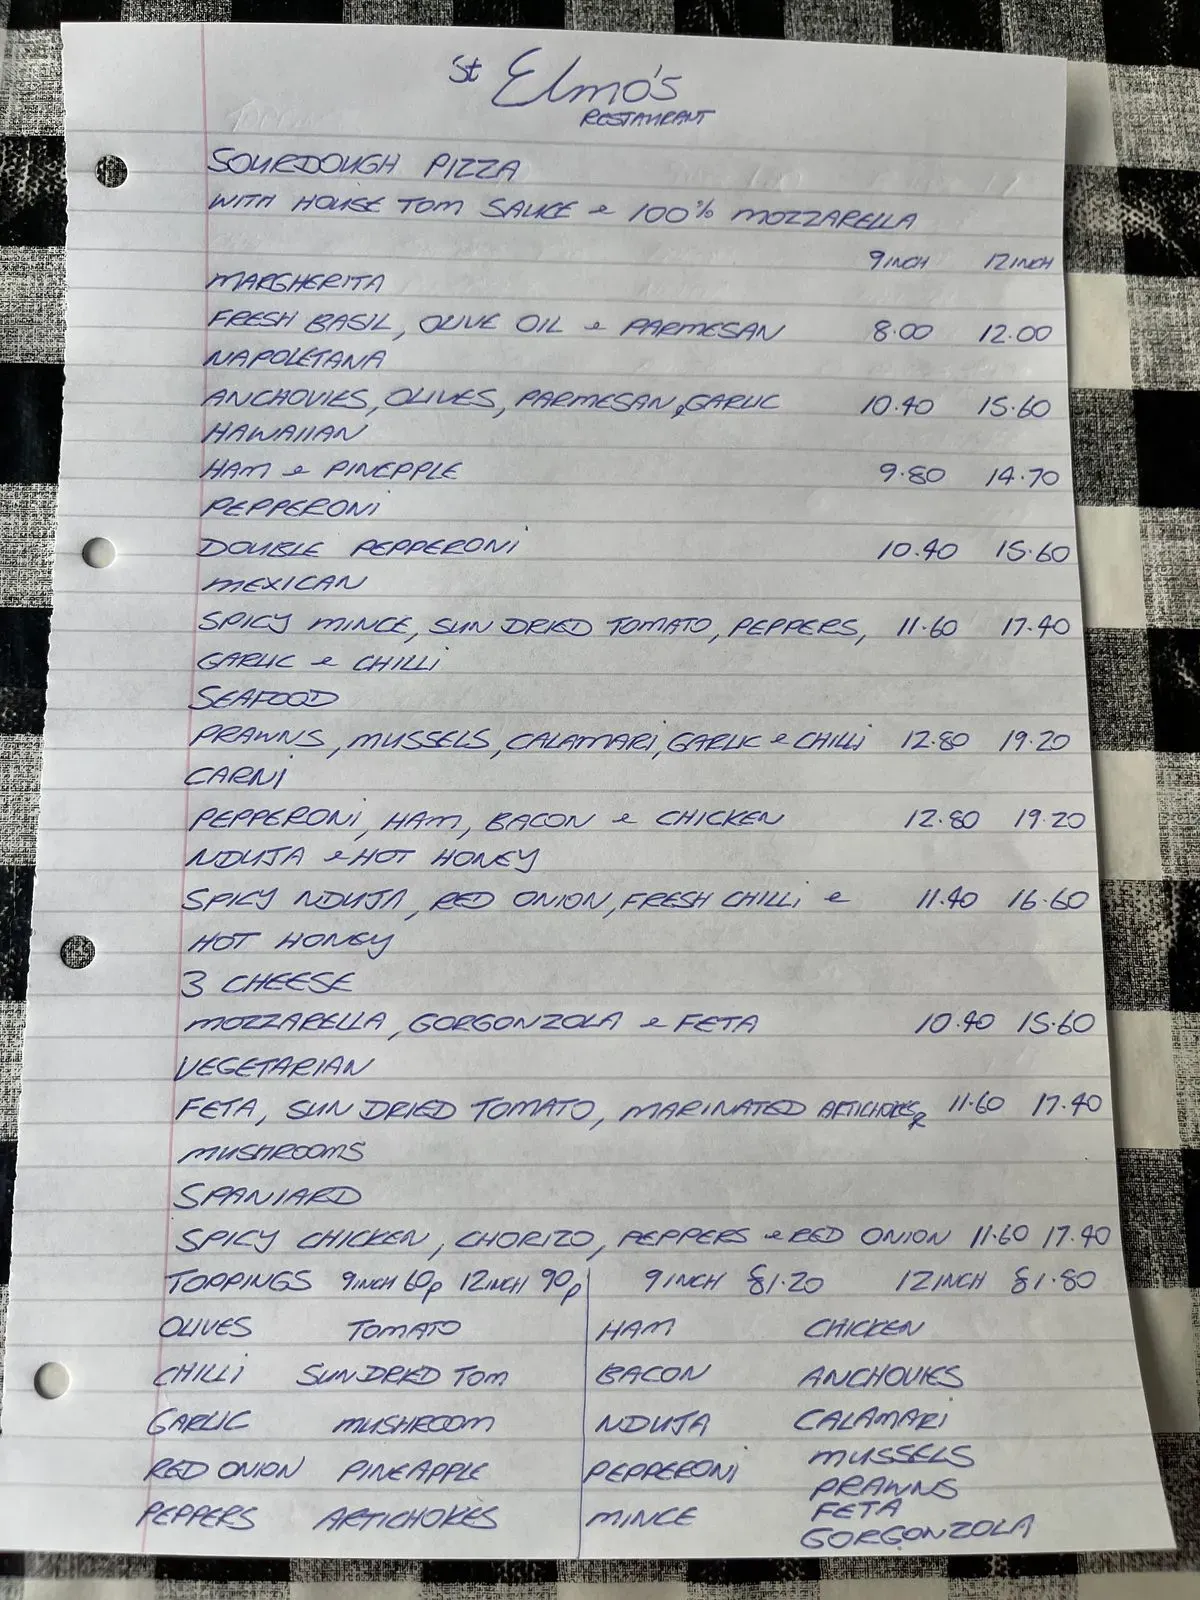 St Elmo's
RESTAURANT
SOURDOUGH PIZZA
WITH HOUSE TOM SAUCE & 100% MOZZARELLA
9INCH 12INCH
MARGHERITA
FRESH BASIL, OLIVE OIL & PARMESAN 8.00 12.00
NAPOLETANA
ANCHOVIES, OLIVES, PARMESAN, GARLIC 10.40 15.60
HAWAIIAN
HAM & PINEPPLE 9.80 14.70
PEPPERONI
DOUBLE PEPPERONI 10.40 15.60
MEXICAN
SPICY MINCE, SUN DRIED TOMATO, PEPPERS, 11.60 17.40
GARLIC & CHILLI
SEAFOOD
PRAWNS, MUSSELS, CALAMARI, GARLIC & CHILLI 12.80 19.20
CARNI
PEPPERONI, HAM, BACON & CHICKEN 12.80 19.20
NDUJA & HOT HONEY
SPICY NDUJA, RED ONION, FRESH CHILLI & 11.40 16.60
HOT HONEY
3 CHEESE
MOZZARELLA, GORGONZOLA & FETA 10.40 15.60
VEGETARIAN
FETA, SUN DRIED TOMATO, MARINATED ARTICHOKES, & 11.60 17.40
MUSHROOMS
SPANIARD
SPICY CHICKEN, CHORIZO, PEPPERS & RED ONION 11.60 17.40
TOPPINGS 9INCH 60p 12INCH 90p 9INCH £1.20 12INCH £1.80
OLIVES TOMATO HAM CHICKEN
CHILLI SUNDRIED TOM BACON ANCHOVIES
GARLIC MUSHROOM NDUJA CALAMARI
RED ONION PINEAPPLE PEPPERONI MUSSELS
PRAWNS
PEPPERS ARTICHOKES MINCE FETA
GORGONZOLA